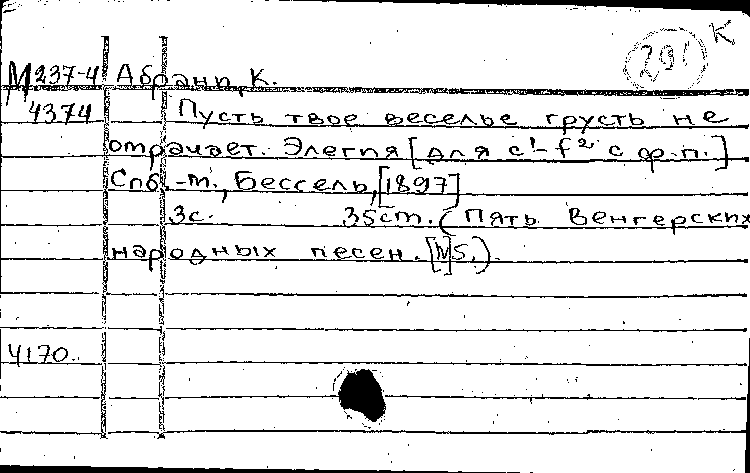 291 К
М237-4 Абрани, К.
4374 Пусть твое веселье грусть не
отрачает. Элегия [для c¹-f² с ф.п.]
Спб.-т., Бессель, [1897]
3с. 35ст. (Пять Венгерских
народных песен. [N5.).
4170.